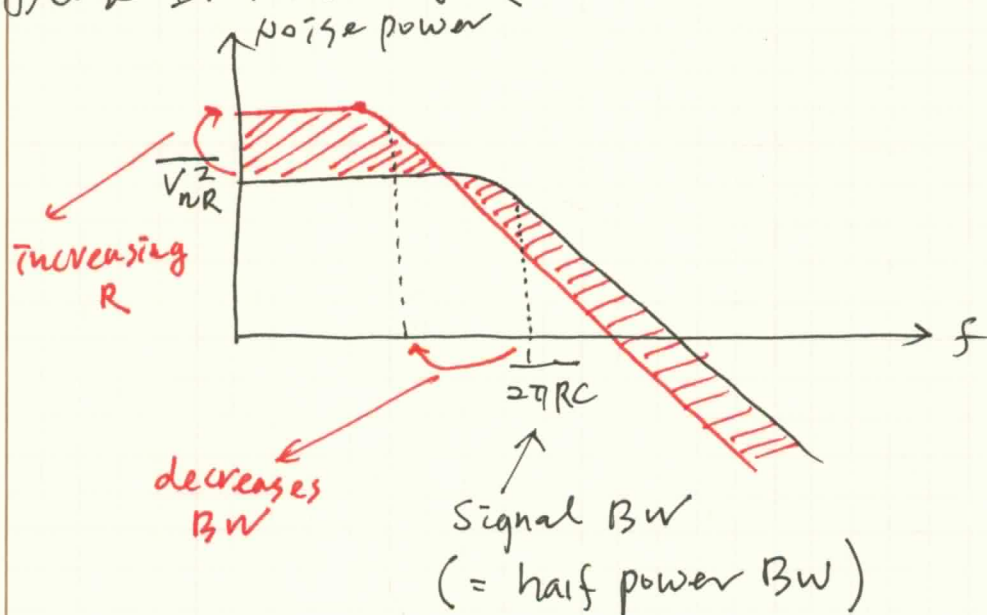 Noise power
V_nR^2
increasing
R
f
2πRC
decreases
BW
Signal BW
(= half power BW)